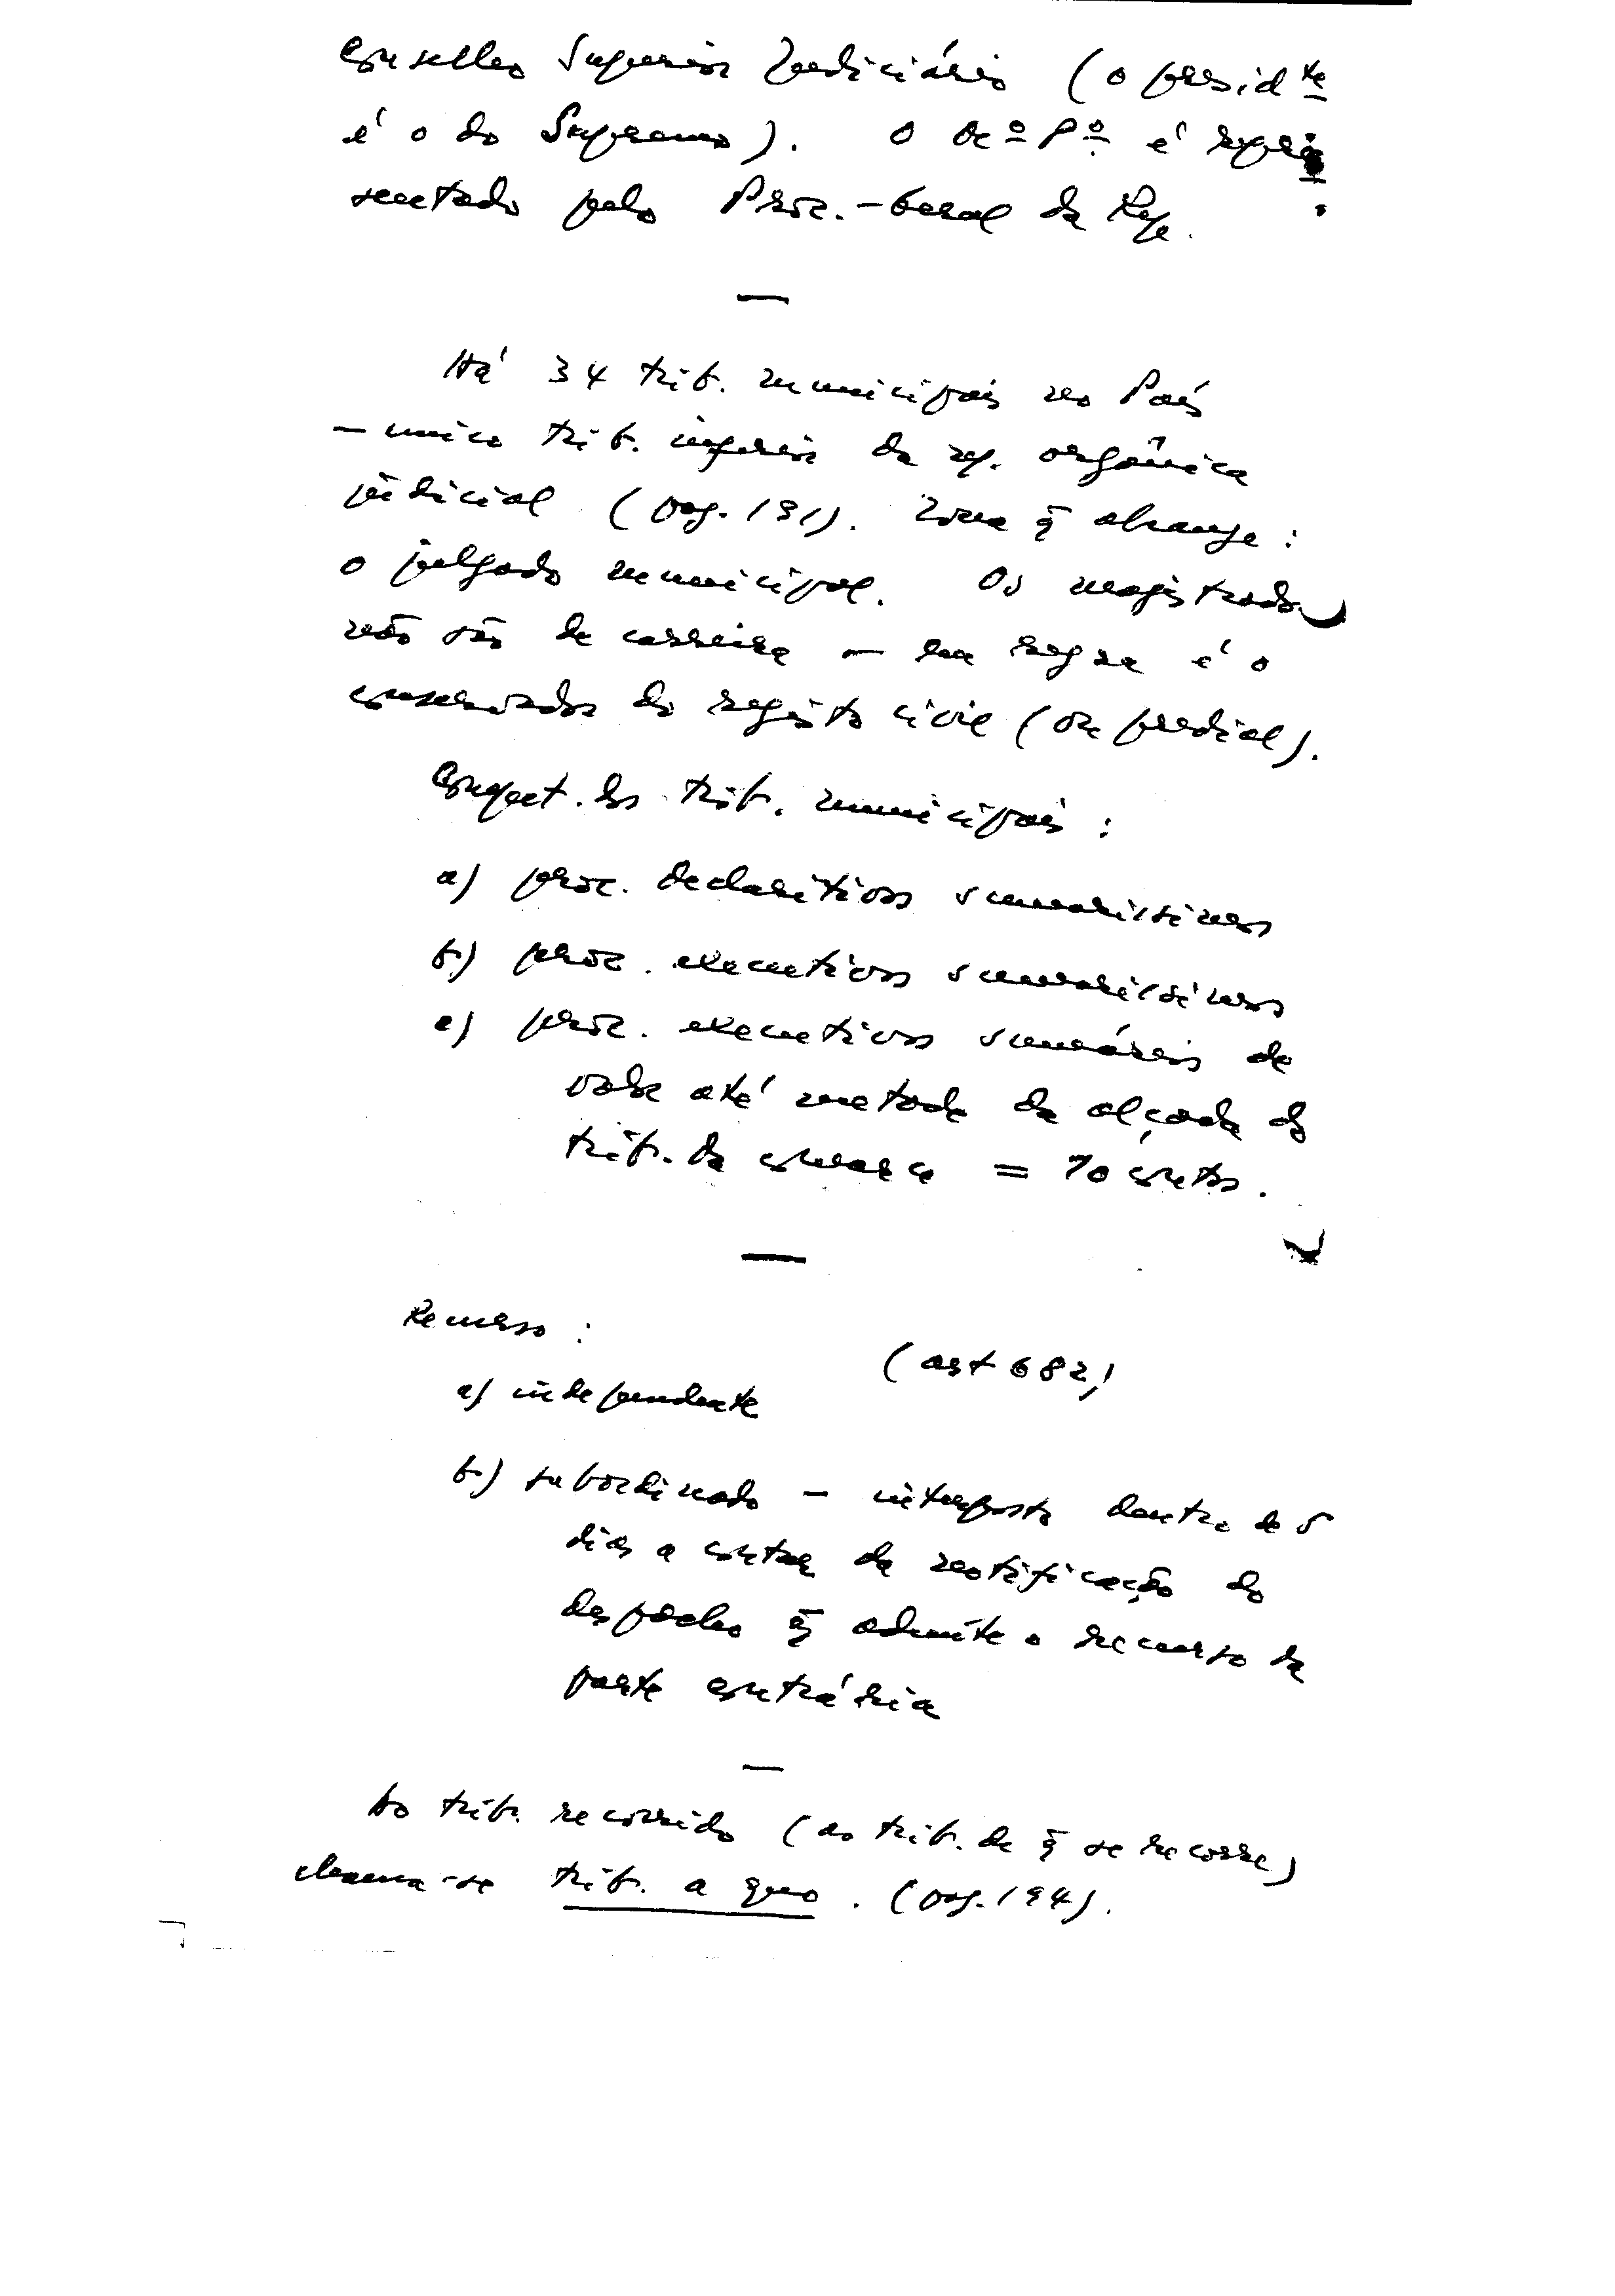 Conselho Superior Judiciário (o presid.te
é o do Supremo). O M.º P.º é repre
sentado pelo Proc.-Geral da Rep.
—
Há 34 trib. municipais no País
— único trib. inferior da n/ orgânica
judicial (pág. 191). Zona q̃ abrange:
o julgado municipal. Os magistrados
não são de carreira — em regra é o
conservador do registo civil (ou predial).
Compet. dos trib. municipais:
a) proc. declarativos sumaríssimos
b) proc. executivos sumaríssimos
c) proc. executivos sumários de
valor até metade da alçada do
trib. da comarca = 70 contos.
—
Recurso:
(art 682)
a) independente
b) subordinado – interposto dentro de 5
dias a contar da notificação do
despacho q̃ admite o recurso da
parte contrária
—
Ao trib. recorrido (ao trib. de q̃ se recorre)
chama-se trib. a quo. (pág. 194).